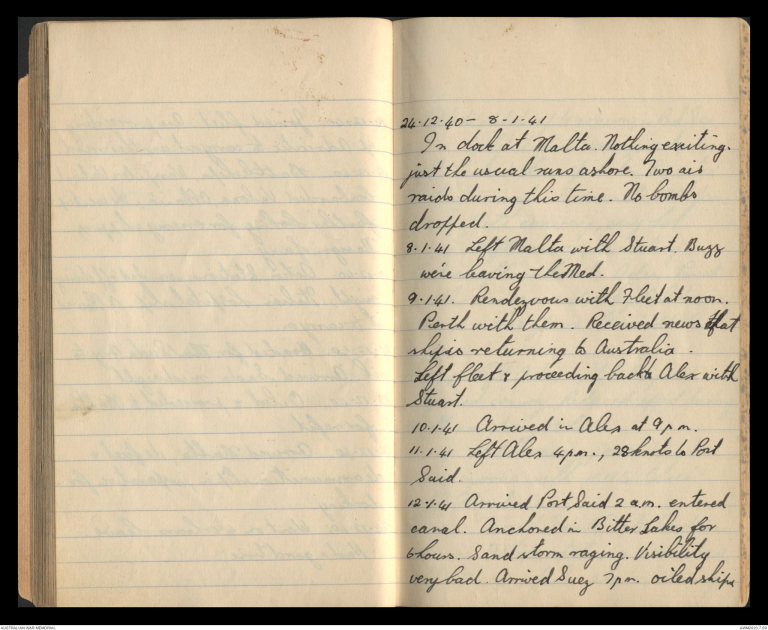 24.12.40 – 8.1.41
In dock at Malta. Nothing exciting.
just the usual runs ashore. Two air
raids during this time. No bombs
dropped.
8.1.41 Left Malta with Stuart. Buzz
we're leaving the Med.
9.1.41. Rendezvous with Fleet at noon.
Perth with them. Received news that
ship is returning to Australia.
Left fleet & proceeding back to Alex with
Stuart.
10.1.41 Arrived in Alex at 9 p.m.
11.1.41 Left Alex 4 p.m., 28 knots to Port
Said.
12.1.41 Arrived Port Said 2 a.m. entered
canal. Anchored in Bitter Lakes for
6 hours. Sand storm raging. Visibility
very bad. Arrived Suez 7 p.m. oiled ship
AUSTRALIAN WAR MEMORIAL